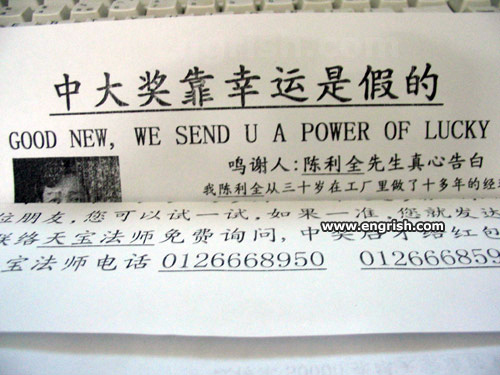 中大奖靠幸运是假的
GOOD NEW, WE SEND U A POWER OF LUCKY
鸣谢人:陈利全先生真心告白
我陈利全从三十岁在工厂里做了十多年的经
位朋友,您可以试一试,如果一准,您就发达
联络天宝法师免费询问,中奖后才给红包
www.engrish.com
宝法师电话 0126668950 012666859